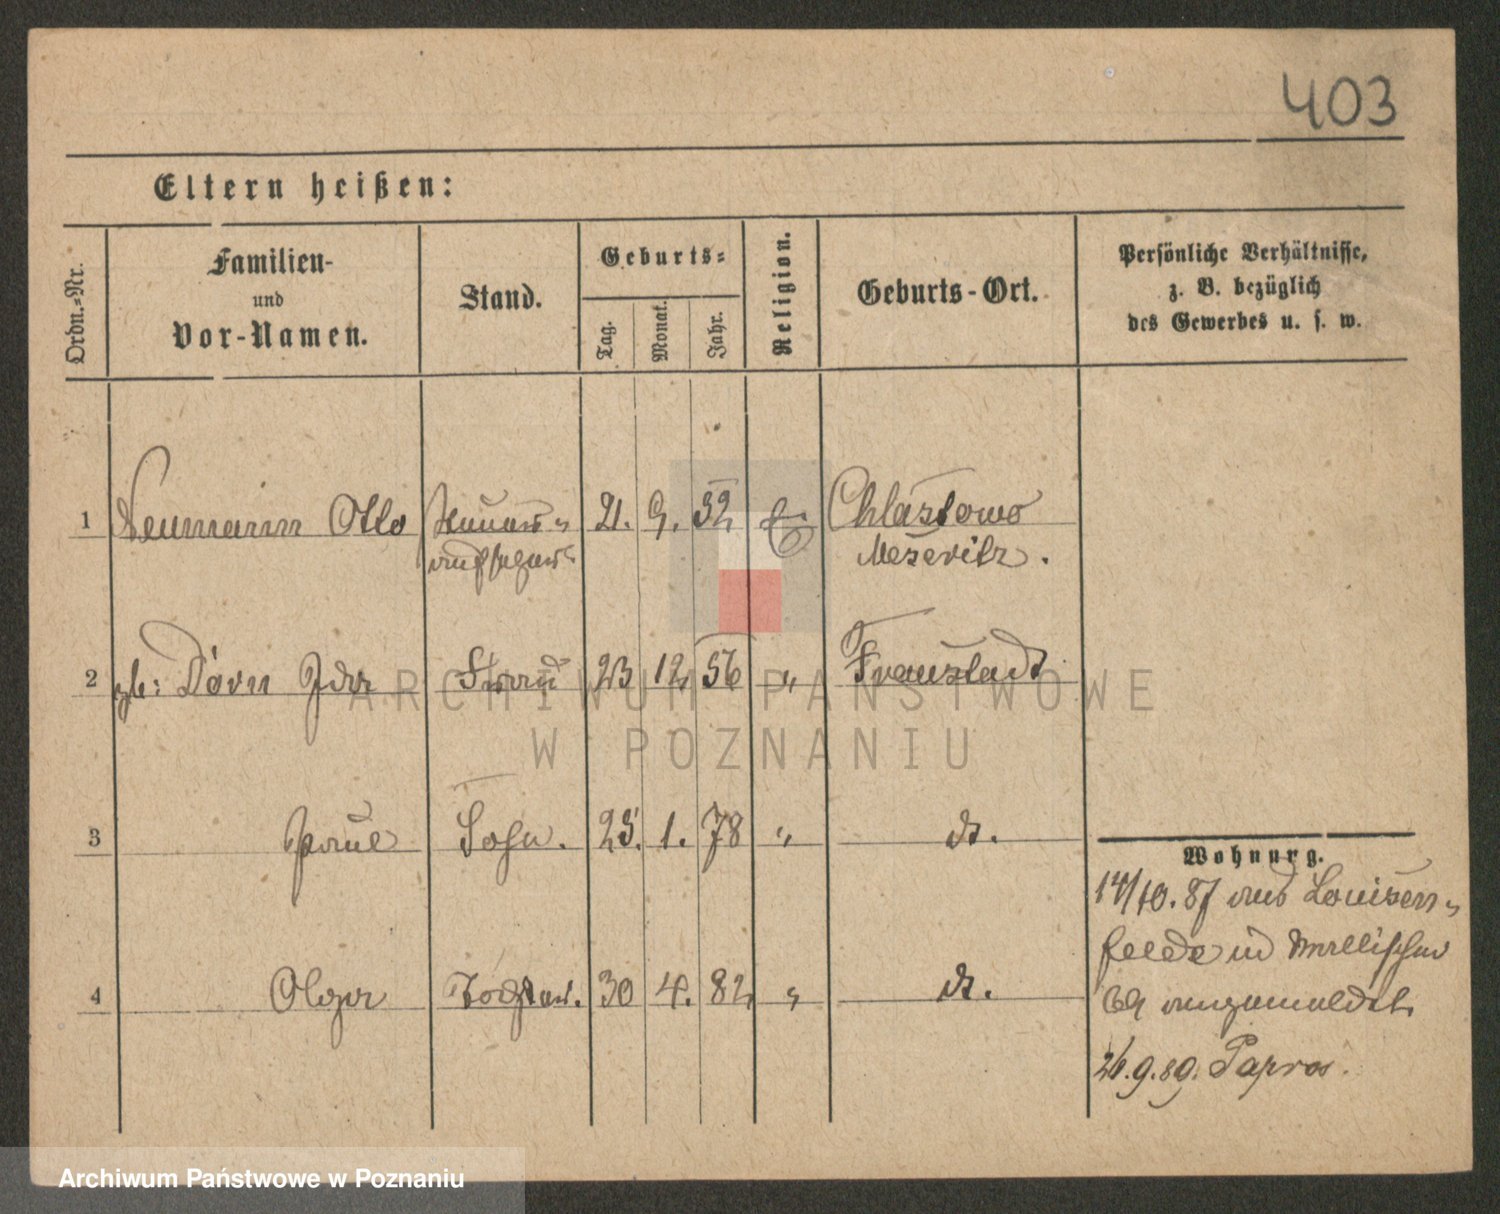 403
Eltern heißen:
Ordn.-Nr.
Familien-
und
Vor-Namen.
Stand.
Geburts-
Tag.
Monat.
Jahr.
Religion.
Geburts-Ort.
Persönliche Verhältnisse,
z. B. bezüglich
des Gewerbes u. s. w.
1 Neumann Otto 21. 9. 52 Chlastowo
aufseher Meseritz.
2 gb: Dorn Ida Frau 23 12 56 " Fraustadt
3 Paul Sohn. 25. 1. 78 " dt.
4 Olga Tochter. 30 4. 82 " dt.
Wohnung.
14/10. 87 aus Louisen-
felde in
angemeldet.
26.9.89. Papros.
ARCHIWUM PAŃSTWOWE
W POZNANIU
Archiwum Państwowe w Poznaniu